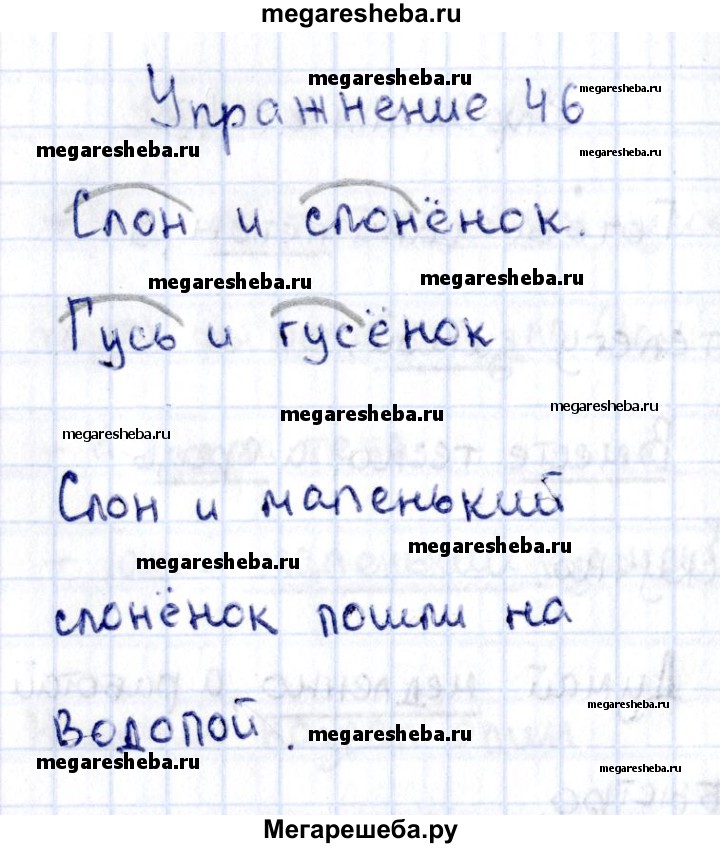 megaresheba.ru
megaresheba.ru
megaresheba.ru
Упражнение 46
megaresheba.ru
megaresheba.ru
Слон и слонёнок.
megaresheba.ru
megaresheba.ru
Гусь и гусёнок
megaresheba.ru
megaresheba.ru
megaresheba.ru
Слон и маленький
megaresheba.ru
megaresheba.ru
слонёнок пошли на
megaresheba.ru
водопой.
megaresheba.ru
megaresheba.ru
megaresheba.ru
Мегарешеба.ру